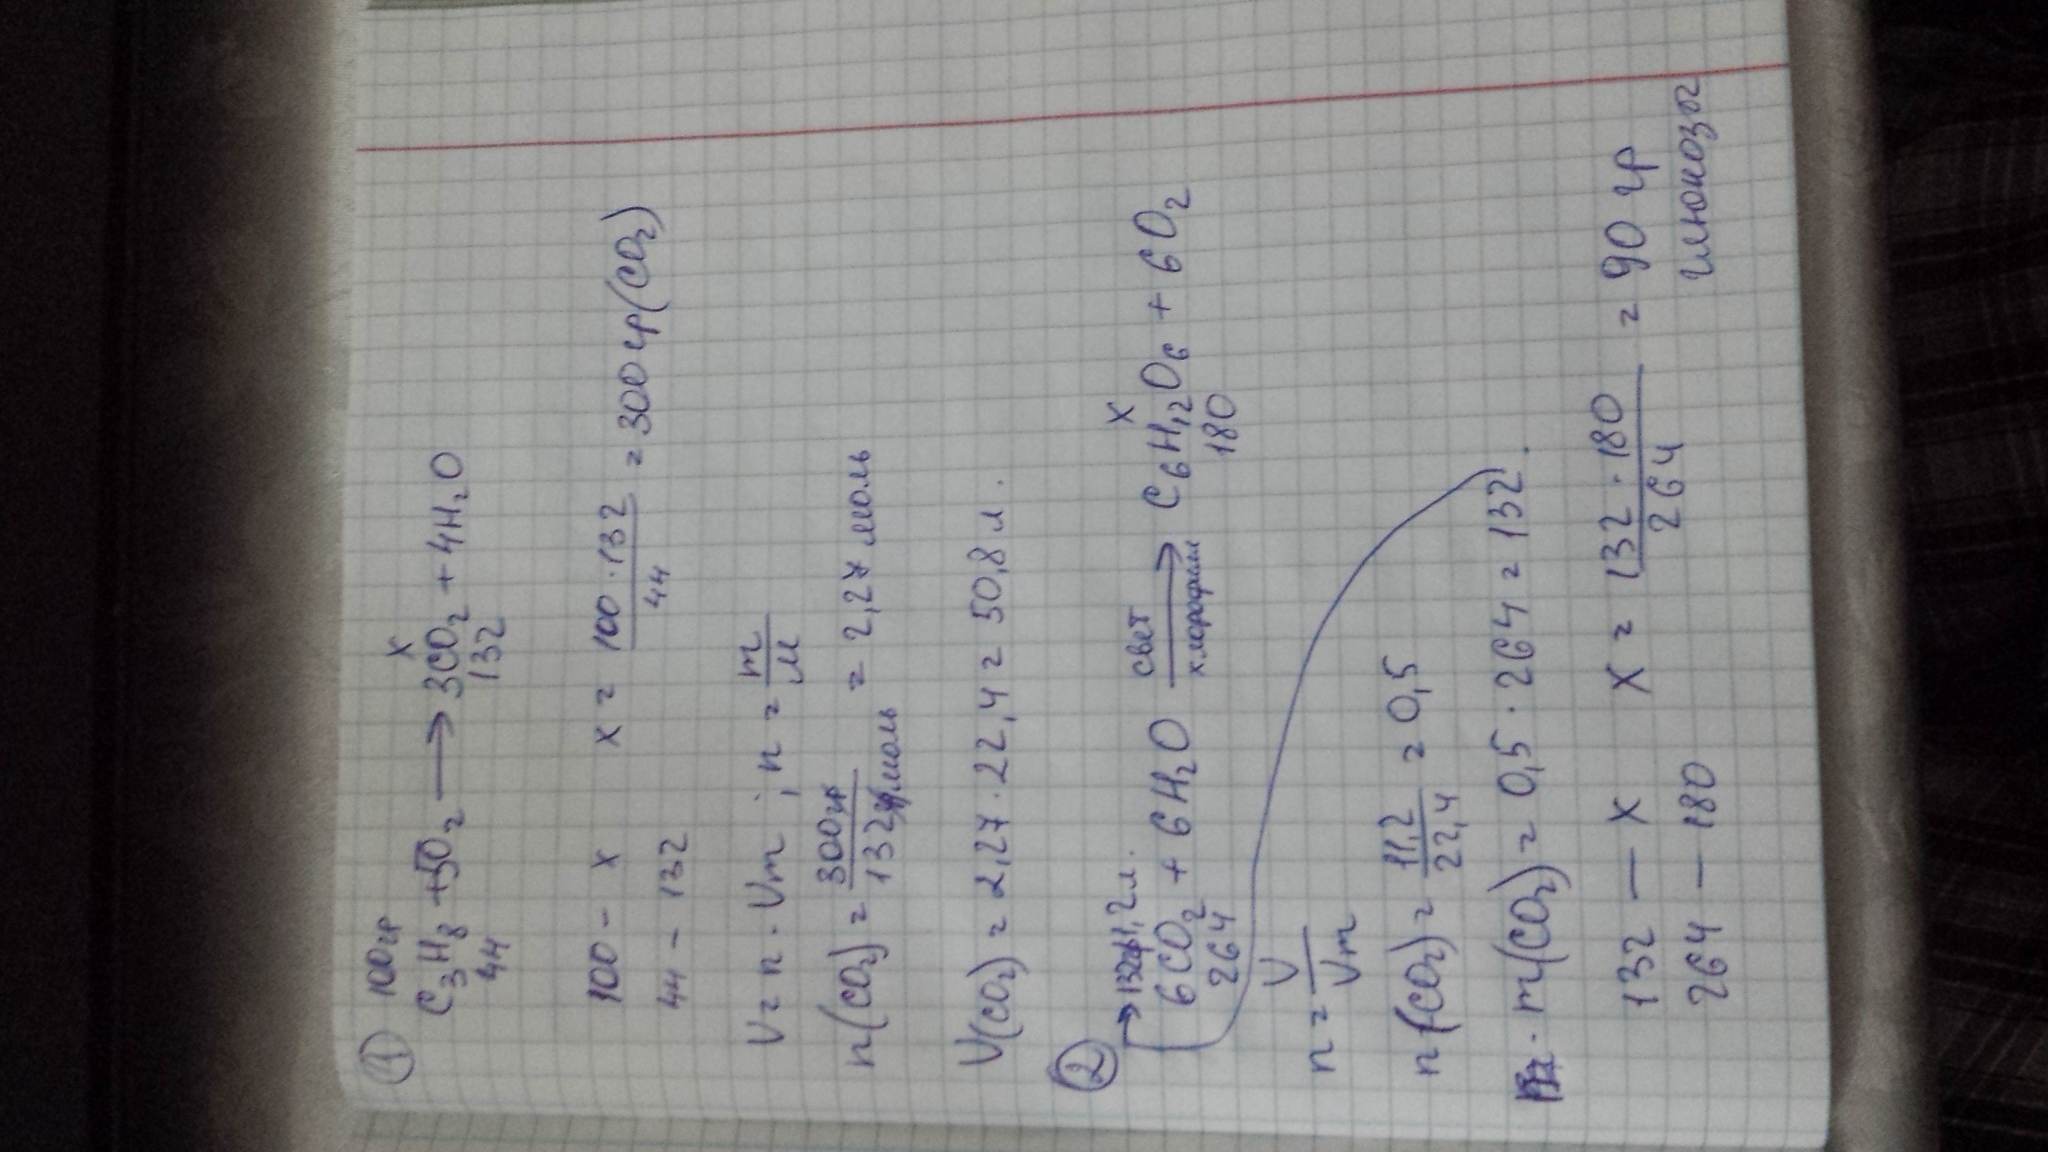 ① 100гр х
C₃H₈ + 5O₂ ⟶ 3CO₂ + 4H₂O
44 132
100 - х х = 100 · 132 / 44 = 300 гр (CO₂)
44 - 132
V = n · Vm ; n = m/M
n(CO₂) = 300гр / 132гр/моль = 2,27 моль
V(CO₂) = 2,27 · 22,4 = 50,8 л.
② 132гр 11,2л. свет х
6CO₂ + 6H₂O ⟶ C₆H₁₂O₆ + 6O₂
264 хлорофилл 180
n = V/Vm
n(CO₂) = 11,2 / 22,4 = 0,5
m(CO₂) = 0,5 · 264 = 132.
132 — х х = 132 · 180 / 264 = 90 гр
264 — 180 глюкозы